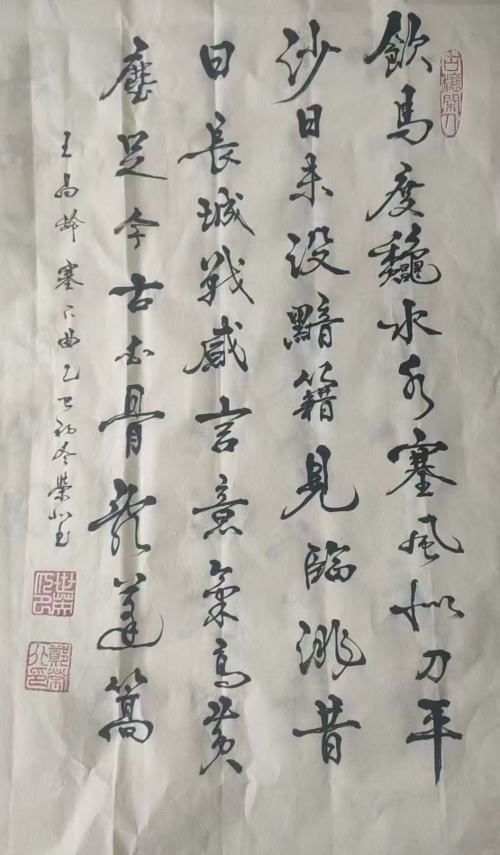 飲馬度龝水水塞風似刀平
沙日未没黯籍見臨洮昔
日長城戰感言意氣高黃
塵足今古白骨亂蓬篙
王昌齡塞下曲乙巳初冬榮